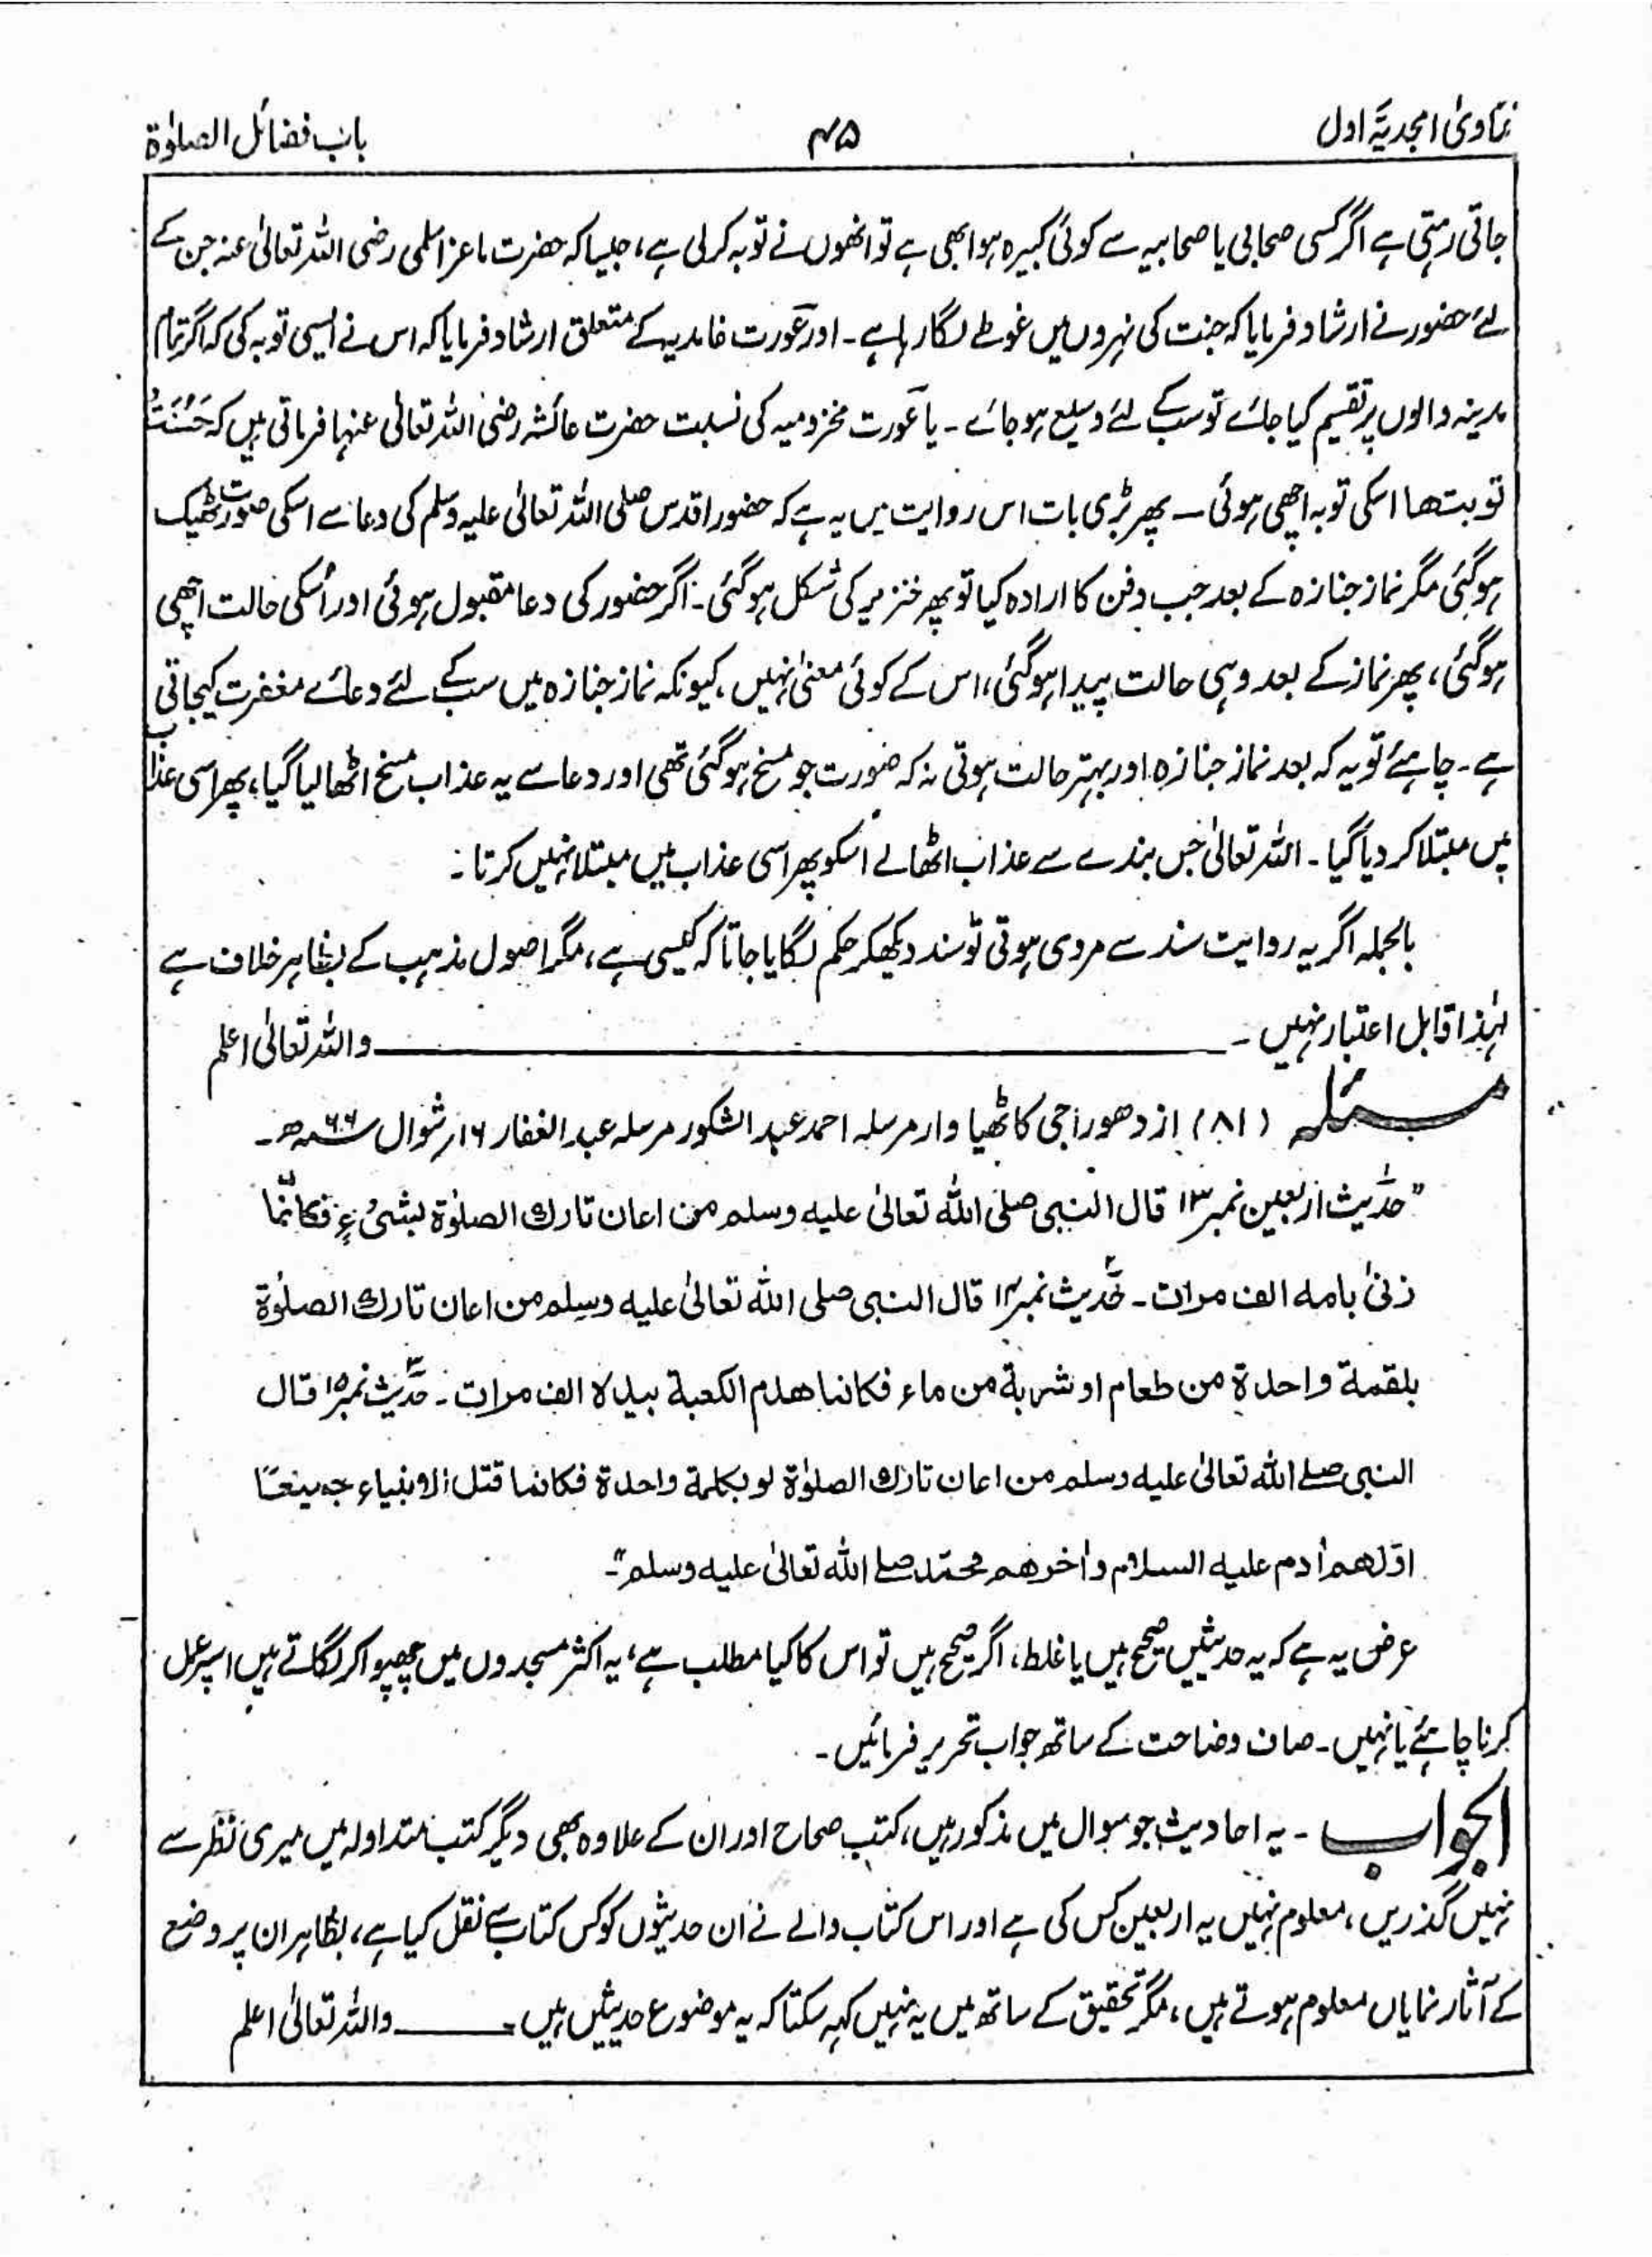 فتاویٰ امجدیہ اول
۴۵
باب فضائل الصلوٰة
جاتی رہتی ہے اگر کسی صحابی یا صحابیہ سے کوئی کبیرہ ہوا بھی ہے تو انھوں نے توبہ کرلی ہے، جیسا کہ حضرت ماعز اسلمی رضی اللہ تعالیٰ عنہ جن کے
لئے حضور نے ارشاد فرمایا کہ جنت کی نہروں میں غوطے لگا رہا ہے ۔ اور عورت غامدیہ کے متعلق ارشاد فرمایا کہ اس نے ایسی توبہ کی کہ اگر تمام
مدینہ والوں پر تقسیم کیا جائے تو سب کے لئے وسیع ہو جائے ۔ یا عورت مخزومیہ کی نسبت حضرت عائشہ رضی اللہ تعالیٰ عنہا فرماتی ہیں کہ حَسُنَتْ
توبتھا اسکی توبہ اچھی ہوئی ۔ پھر بڑی بات اس روایت میں یہ ہے کہ حضور اقدس صلی اللہ تعالیٰ علیہ وسلم کی دعا سے اسکی صورت ٹھیک
ہوگئی مگر نماز جنازہ کے بعد جب دفن کا ارادہ کیا تو پھر خنزیر کی شکل ہوگئی ۔ اگر حضور کی دعا مقبول ہوئی اور اُسکی حالت اچھی
ہوگئی، پھر نماز کے بعد وہی حالت پیدا ہوگئی، اس کے کوئی معنیٰ نہیں، کیونکہ نماز جنازہ میں سب کے لئے دعائے مغفرت کیجاتی
ہے ۔ چاہئے تو یہ کہ بعد نماز جنازہ اور بہتر حالت ہوتی نہ کہ صورت جو مسخ ہوگئی تھی اور دعا سے یہ عذاب مسخ اٹھا لیا گیا، پھر اسی عذاب
میں مبتلا کر دیا گیا ۔ اللہ تعالیٰ جس بندے سے عذاب اٹھالے اسکو پھر اسی عذاب میں مبتلا نہیں کرتا ۔
بالجملہ اگر یہ روایت سند سے مروی ہوتی تو سند دیکھکر حکم لگایا جاتا کہ کیسی ہے، مگر اصول مذہب کے بظاہر خلاف ہے
لہٰذا قابل اعتبار نہیں ۔ واللہ تعالیٰ اعلم
مسئلہ (۸۱) از دھوراجی کاٹھیاوار مرسلہ احمد عبد الشکور مرسلہ عبد الغفار ۱۶ شوال ۶۶ھ ۔
”حدیث اربعین نمبر ۱۳ قال النبی صلی اللہ تعالیٰ علیہ وسلم من اعان تارك الصلوٰة بشیءٍ فکانّما
زنیٰ بامہ الف مرات ۔ حدیث نمبر ۱۴ قال النبی صلی اللہ تعالیٰ علیہ وسلم من اعان تارك الصلوٰة
بلقمة واحدة من طعام او شربة من ماء فکانما ھدم الکعبة بیدہ الف مرات ۔ حدیث نمبر ۱۵ قال
النبی صلے اللہ تعالیٰ علیہ وسلم من اعان تارك الصلوٰة لو بکلمة واحدة فکانما قتل الانبیاء جمیعًا
اوّلھم اٰدم علیہ السلام واٰخرھم محمّد صلے اللہ تعالیٰ علیہ وسلم“۔
عرض یہ ہے کہ یہ حدیثیں صحیح ہیں یا غلط، اگر صحیح ہیں تو اس کا کیا مطلب ہے، یہ اکثر مسجدوں میں چھپوا کر لگاتے ہیں اسپر عمل
کرنا چاہئے یا نہیں ۔ صاف وضاحت کے ساتھ جواب تحریر فرمائیں ۔
الجواب ۔ یہ احادیث جو سوال میں مذکور ہیں، کتب صحاح اور ان کے علاوہ بھی دیگر کتب متداولہ میں میری نظر سے
نہیں گذریں، معلوم نہیں یہ اربعین کس کی ہے اور اس کتاب والے نے ان حدیثوں کو کس کتاب سے نقل کیا ہے، بظاہر ان پر وضع
کے آثار نمایاں معلوم ہوتے ہیں، مگر تحقیق کے ساتھ میں یہ نہیں کہہ سکتا کہ یہ موضوع حدیثیں ہیں ۔ واللہ تعالیٰ اعلم